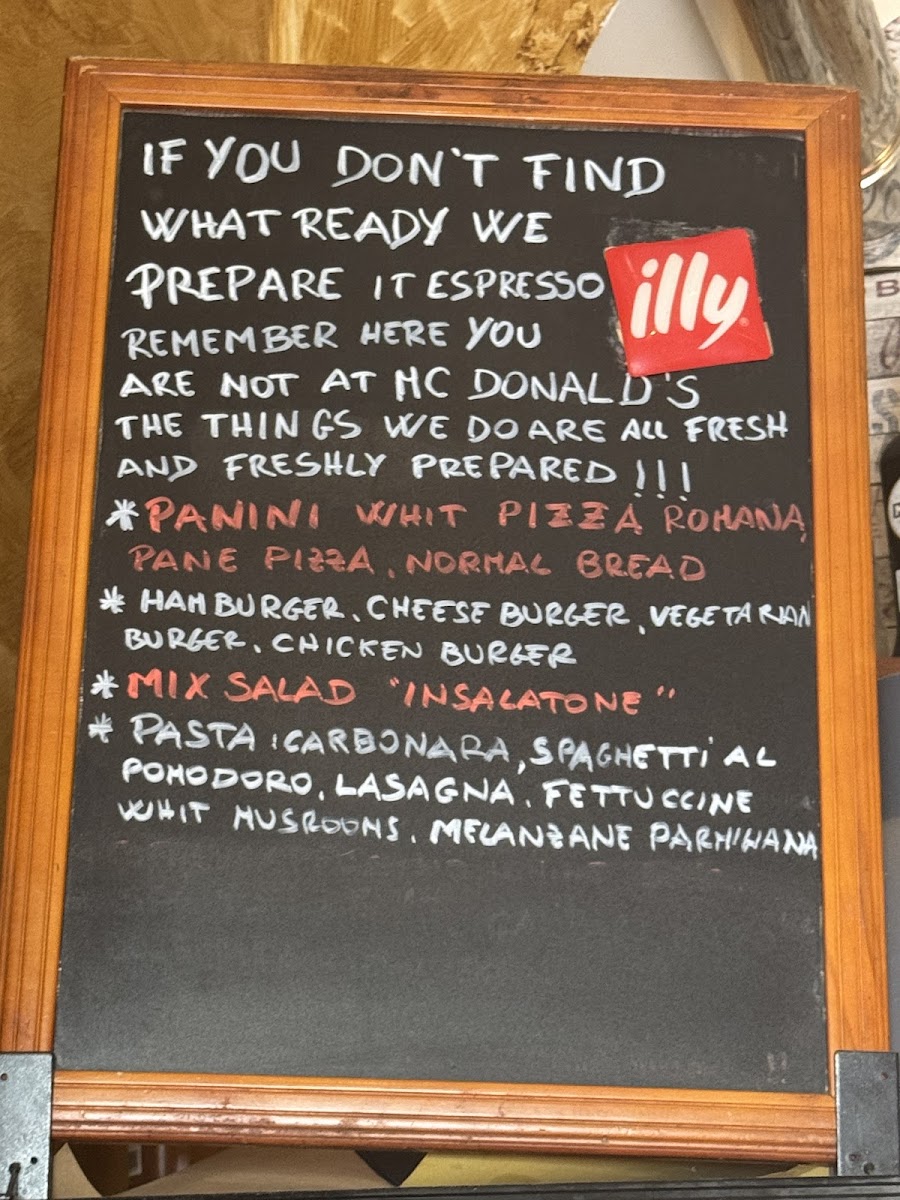 IF YOU DON'T FIND
WHAT READY WE
PREPARE IT ESPRESSO
illy
REMEMBER HERE YOU
ARE NOT AT MC DONALD'S
THE THINGS WE DO ARE ALL FRESH
AND FRESHLY PREPARED !!!
* PANINI WHIT PIZZA ROMANA,
PANE PIZZA, NORMAL BREAD
* HAMBURGER, CHEESE BURGER, VEGETARIAN
BURGER, CHICKEN BURGER
* MIX SALAD "INSALATONE"
* PASTA: CARBONARA, SPAGHETTI AL
POMODORO, LASAGNA, FETTUCCINE
WHIT MUSROOMS, MELANZANE PARMIHANA